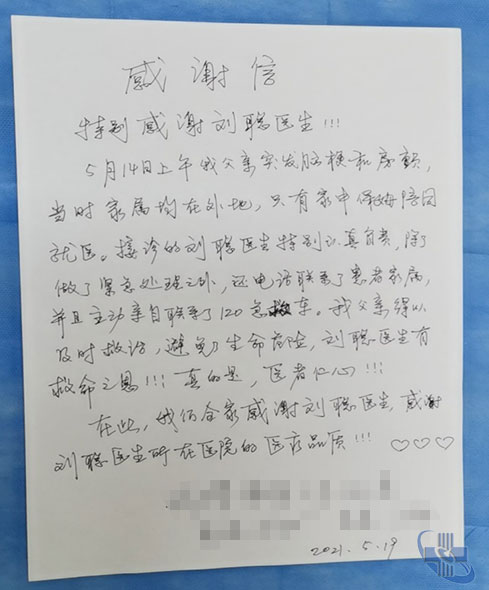 感谢信
特别感谢刘聪医生!!!
5月14日上午我父亲突发脑梗和房颤,
当时家属均在外地,只有家中保姆陪同
就医。接诊的刘聪医生特别认真负责,除了
做了紧急处理之外,还电话联系了患者家属,
并且主动亲自联系了120急救车。我父亲得以
及时救治,避免了生命危险,刘聪医生有
救命之恩!!!真的是,医者仁心!!!
在此,我们全家感谢刘聪医生,感谢
刘聪医生所在医院的医疗品质!!! ♡♡♡
2021.5.19